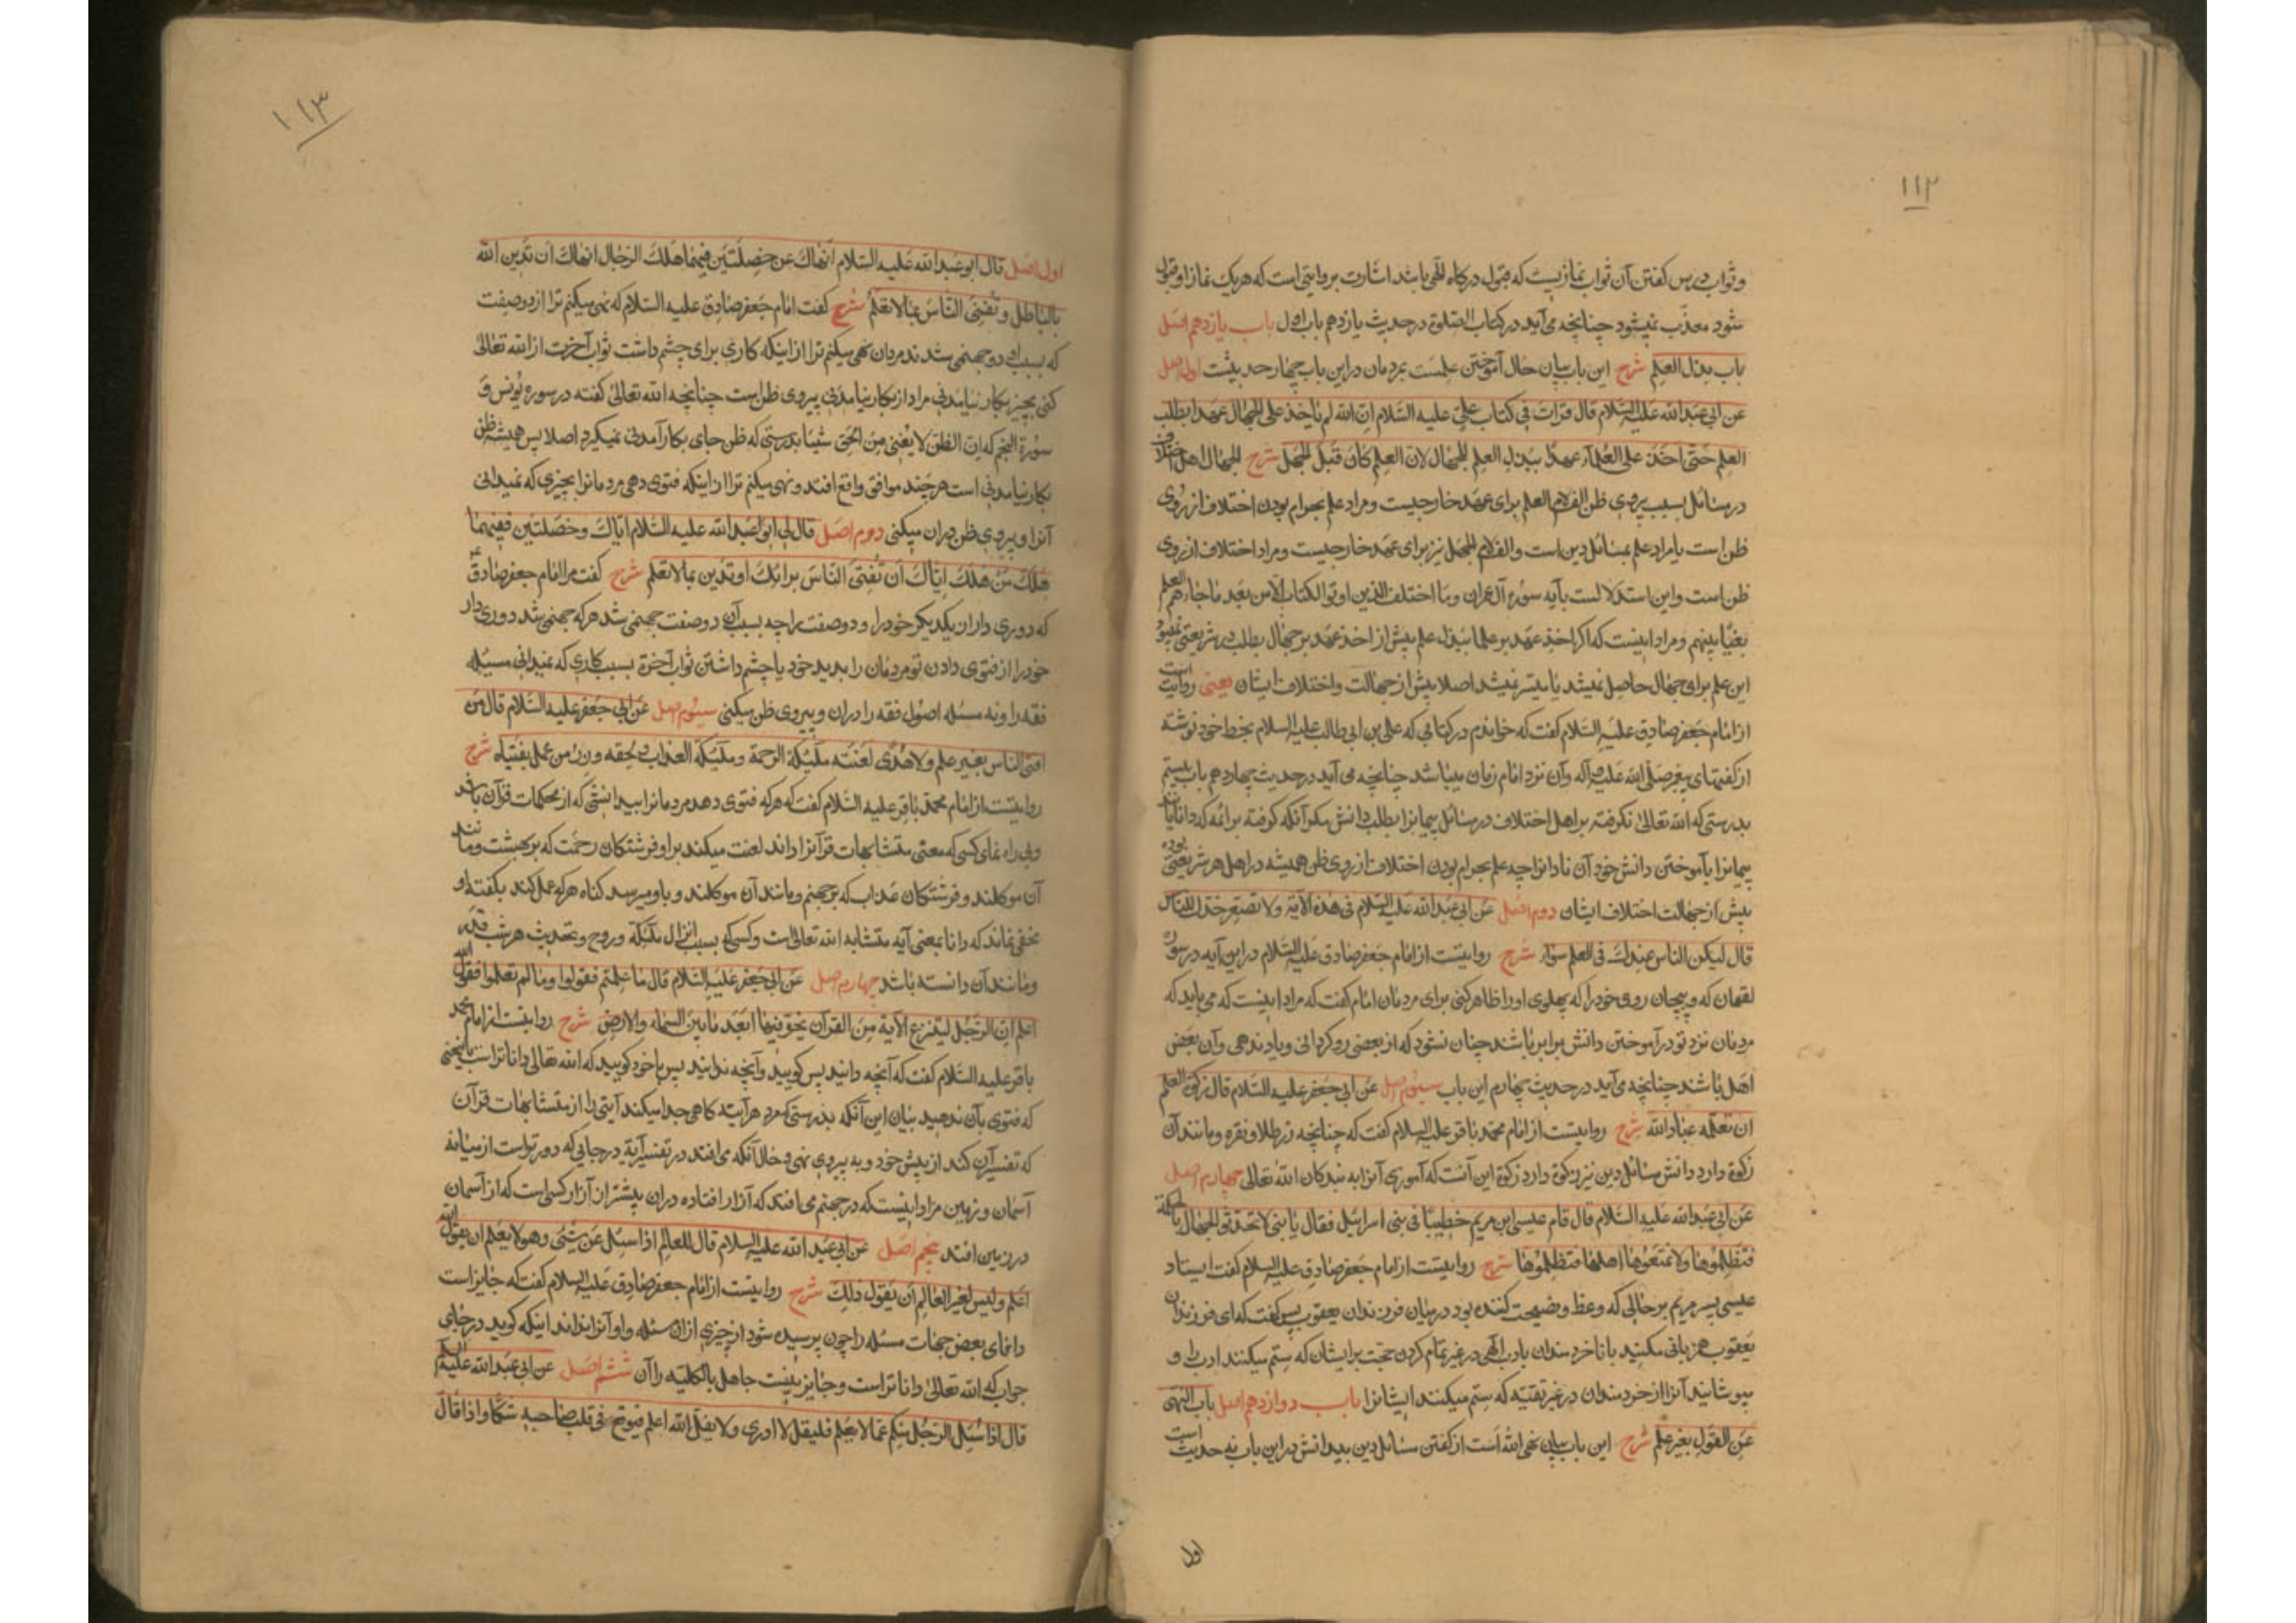 ١١٢
وثواب درس کفتن آن ثواب نمازیست که قبول درکاه الهی باشد اشارت بروایتی است که هریک نماز او قبول
شود معذب نمیشود چنانچه می‌آید در کتاب الصلوة در حدیث یازدهم باب اول باب یازدهم اصل
باب بذل العلم شرح این باب بیان حال آموختن علمست بمردمان در این باب چهار حدیث است اول اصل
عن ابی عبد الله علیه السلام قال قرات فی کتاب علی علیه السلام ان الله لم یاخذ علی الجهال عهدا بطلب
العلم حتی اخذ علی العلماء عهدا ببذل العلم للجهال لان العلم کان قبل الجهل شرح الجهال اهل اختلاف
در مسائل بسبب پیروی ظن الف لام العلم برای عهد خارجیست ومراد علم بحرام بودن اختلاف از روی
ظن است یا مراد علم بمسائل دین است والف لام الجهل نیز برای عهد خارجیست ومراد اختلاف از روی
ظن است واین استدلالست بآیه سوره آل عمران وما اختلف الذین اوتوا الکتاب الا من بعد ما جاءهم العلم
بغیا بینهم ومراد اینست که اکر اخذ عهد بر علما ببذل علم پیش از اخذ عهد بر جهال بطلب در شریعتی نمیبود
این علم برای جهال حاصل نمیشد یا میسر نمیشد اصلا پیش از جهالت واختلاف ایشان یعنی روایت است
از امام جعفر صادق علیه السلام کفت که خواندم در کتابی که علی بن ابی طالب علیه السلام بخط خود نوشته
از کفتهای پیغمبر صلی الله علیه وآله وآن نزد امام زمان میباشد چنانچه می‌آید در حدیث چهاردهم باب بیستم
بدرستی که الله تعالی نکرفته بر اهل اختلاف در مسائل پیمانرا بطلب دانش مکر آنکه کرفته برائمه که دانایان
پیمانرا بآموختن دانش خود آن نادانرا چه علم بحرام بودن اختلاف از روی ظن همیشه در اهل هر شریعتی بوده
پیش از جهالت اختلاف ایشان دوم اصل عن ابی عبد الله علیه السلام فی هذه الآیة ولا تصعر خدک للناس
قال لیکن الناس عندک فی العلم سواء شرح روایتست از امام جعفر صادق علیه السلام در این آیه در سوره
لقمان که ومپیچان روی خود را که پهلوی او را ظاهر کنی برای مردمان امام کفت که مراد اینست که می باید که
مردمان نزد تو در آموختن دانش برابر باشند چنان نشود که از بعضی رو کردانی ویاد ندهی وآن بعض
اهل باشند چنانچه می‌آید در حدیث چهارم این باب سیوم اصل عن ابی جعفر علیه السلام قال زکوة العلم
ان تعلمه عباد الله شرح روایتست از امام محمد باقر علیه السلام کفت که چنانچه زر طلا ونقره ومانند آن
زکوة دارد دانش مسائل دین نیز زکوة دارد زکوة این آنست که آموزی آنرا به بندکان الله تعالی چهارم اصل
عن ابی عبد الله علیه السلام قال قام عیسی ابن مریم خطیبا فی بنی اسرائیل فقال یا بنی لا تحدثوا الجهال بالحکمة
فتظلموها ولا تمنعوها اهلها فتظلموها شرح روایتست از امام جعفر صادق علیه السلام کفت ایستاد
عیسی پسر مریم بر حالی که وعظ ونصیحت کننده بود در میان فرزندان یعقوب پس کفت که ای فرزندان
یعقوب همزبانی مکنید با ناخردمندان بادب الهی در غیر تمام کردن حجت بر ایشان که ستم میکنند ادب را و
مپوشانید آنرا از خردمندان در غیر تقیه که ستم میکنند ایشانرا باب دوازدهم اصل باب النهی
عن القول بغیر علم شرح این باب بیان نهی الله است از کفتن مسائل دین بیدانش در این باب نه حدیث است
اول
١١٣
اول اصل قال ابو عبد الله علیه السلام انهاک عن خصلتین فیهما هلک الرجال انهاک ان تدین الله
بالباطل وتفتی الناس بما لا تعلم شرح کفت امام جعفر صادق علیه السلام که نهی میکنم ترا از دو صفت
که بسبب او دو جهنمی شدند مردان نهی میکنم ترا از اینکه کاری برای چشم داشت ثواب آخرت از الله تعالی
کنی بچیز بکار نیامدنی مراد از بکار نیامدنی پیروی ظن است چنانچه الله تعالی کفته در سوره یونس و
سورة النجم که ان الظن لا یغنی من الحق شیئا بدرستی که ظن جای بکار آمدنی نمیکیرد اصلا پس همیشه ظن
بکار نیامدنی است هر چند موافق واقع افتد ونهی میکنم ترا از اینکه فتوی دهی مردمانرا بچیزی که نمیدانی
آنرا وپیروی ظن در ان میکنی دوم اصل قال لی ابو عبد الله علیه السلام ایاک وخصلتین ففیهما
هلک من هلک ایاک ان تفتی الناس برایک او تدین بما لا تعلم شرح کفت مرا امام جعفر صادق
که دوری دار ان یکدیکر خود را و دو صفت را چه بسبب آن دو صفت جهنمی شد هر که جهنمی شد دوری دار
خود را از فتوی دادن تو مردمان را بدید خود یا چشم داشتن ثواب آخرة بسبب کاری که نمیدانی مسئله
فقه را ونه مسئله اصول فقه را در ان وپیروی ظن میکنی سیوم اصل عن ابی جعفر علیه السلام قال من
افتی الناس بغیر علم ولا هدی لعنته ملئکة الرحمة وملئکة العذاب ولحقه وزر من عمل بفتیاه شرح
روایتست از امام محمد باقر علیه السلام کفت که هر که فتوی دهد مردمانرا بیدانشی که از محکمات قرآن باشد
وبی راه نمای کسی که معنی متشابهات قرآنرا داند لعنت میکنند بر او فرشتکان رحمت که بر بهشت ومانند
آن موکلند وفرشتکان عذاب که بر جهنم ومانند آن موکلند وباو میرسد کناه هر که عمل کند بکفته او
مخفی نماند که دانا بمعنی آیه متشابه الله تعالی است وکسی که بسبب انزال ملئکة وروح وتحدیث هر شب قدر
ومانند آن دانسته باشد چهارم اصل عن ابی جعفر علیه السلام قال ما علمتم فقولوا وما لم تعلموا فقولوا الله
اعلم ان الرجل لینتزع الآیة من القرآن یخر فیها ابعد ما بین السماء والارض شرح روایتست از امام محمد
باقر علیه السلام کفت که آنچه دانید پس کویید وآنچه ندانید پس با خود کویید که الله تعالی داناتر است یعنی
که فتوی بآن ندهید بیان این آنکه بدرستی که مرد هر آینه کاهی جدا میکند آیتی را از متشابهات قرآن
که تفسیر آن کند از پیش خود وبه پیروی نهی وحال آنکه می افتد در تفسیر آیة در جایی که دورتر است از میانه
آسمان وزمین مراد اینست که در جهنم می افتد که آزار افتاده در ان بیشتر از آزار کسی است که از آسمان
در زمین افتد پنجم اصل عن ابی عبد الله علیه السلام قال للعالم اذا سئل عن شیئ وهو لا یعلم ان یقول الله
اعلم ولیس لغیر العالم ان یقول ذلک شرح روایتست از امام جعفر صادق علیه السلام کفت که جایز است
دانای بعض جهات مسئله را چون پرسیده شود از چیزی از ان مسئله واو آنرا نداند اینکه کوید در جای
جواب که الله تعالی داناتر است وجایز نیست جاهل بالکلیه را آن ششم اصل عن ابی عبد الله علیه السلم
قال اذا سئل الرجل منکم عما لا یعلم فلیقل لا ادری ولا یقل الله اعلم فیوقع فی قلب صاحبه شکا واذا قال